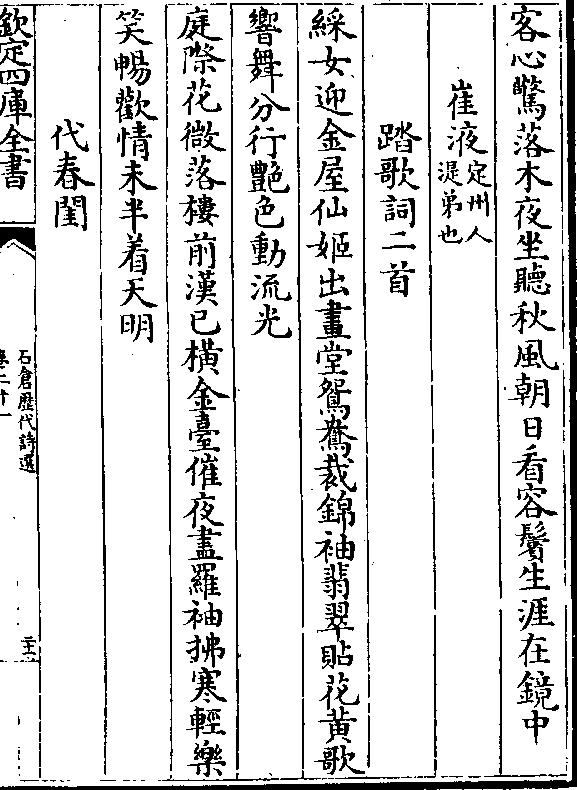 客心驚落木夜坐聽秋風朝日看容鬢生涯在鏡中
崔液定州人
湜弟也
踏歌詞二首
綵女迎金屋仙姬出畫堂鴛鴦裁錦袖翡翠貼花黃歌
響舞分行艷色動流光
庭際花微落樓前漢已橫金臺催夜盡羅袖拂寒輕樂
笑暢歡情未半着天明
代春閨
欽定四庫全書
石倉歷代詩選
卷二十一